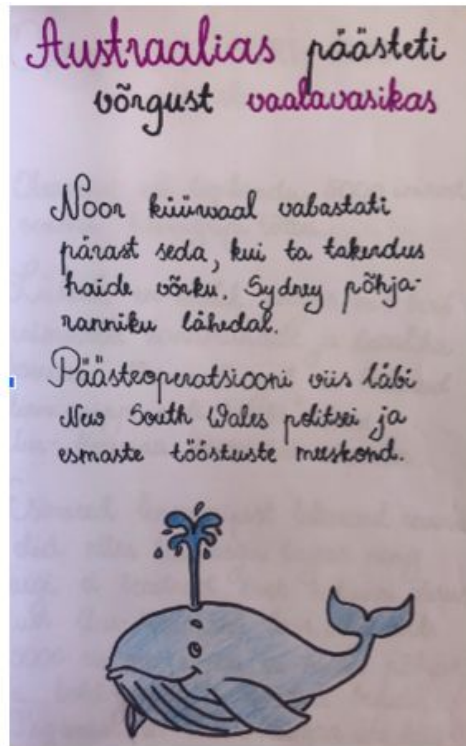 Austraalias päästeti
võrgust vaalavasikas
Noor küürvaal vabastati
pärast seda, kui ta takerdus
haide võrku. Sydney põhja-
ranniku lähedal.
Päästeoperatsiooni viis läbi
New South Wales politsei ja
esmaste tööstuste meeskond.